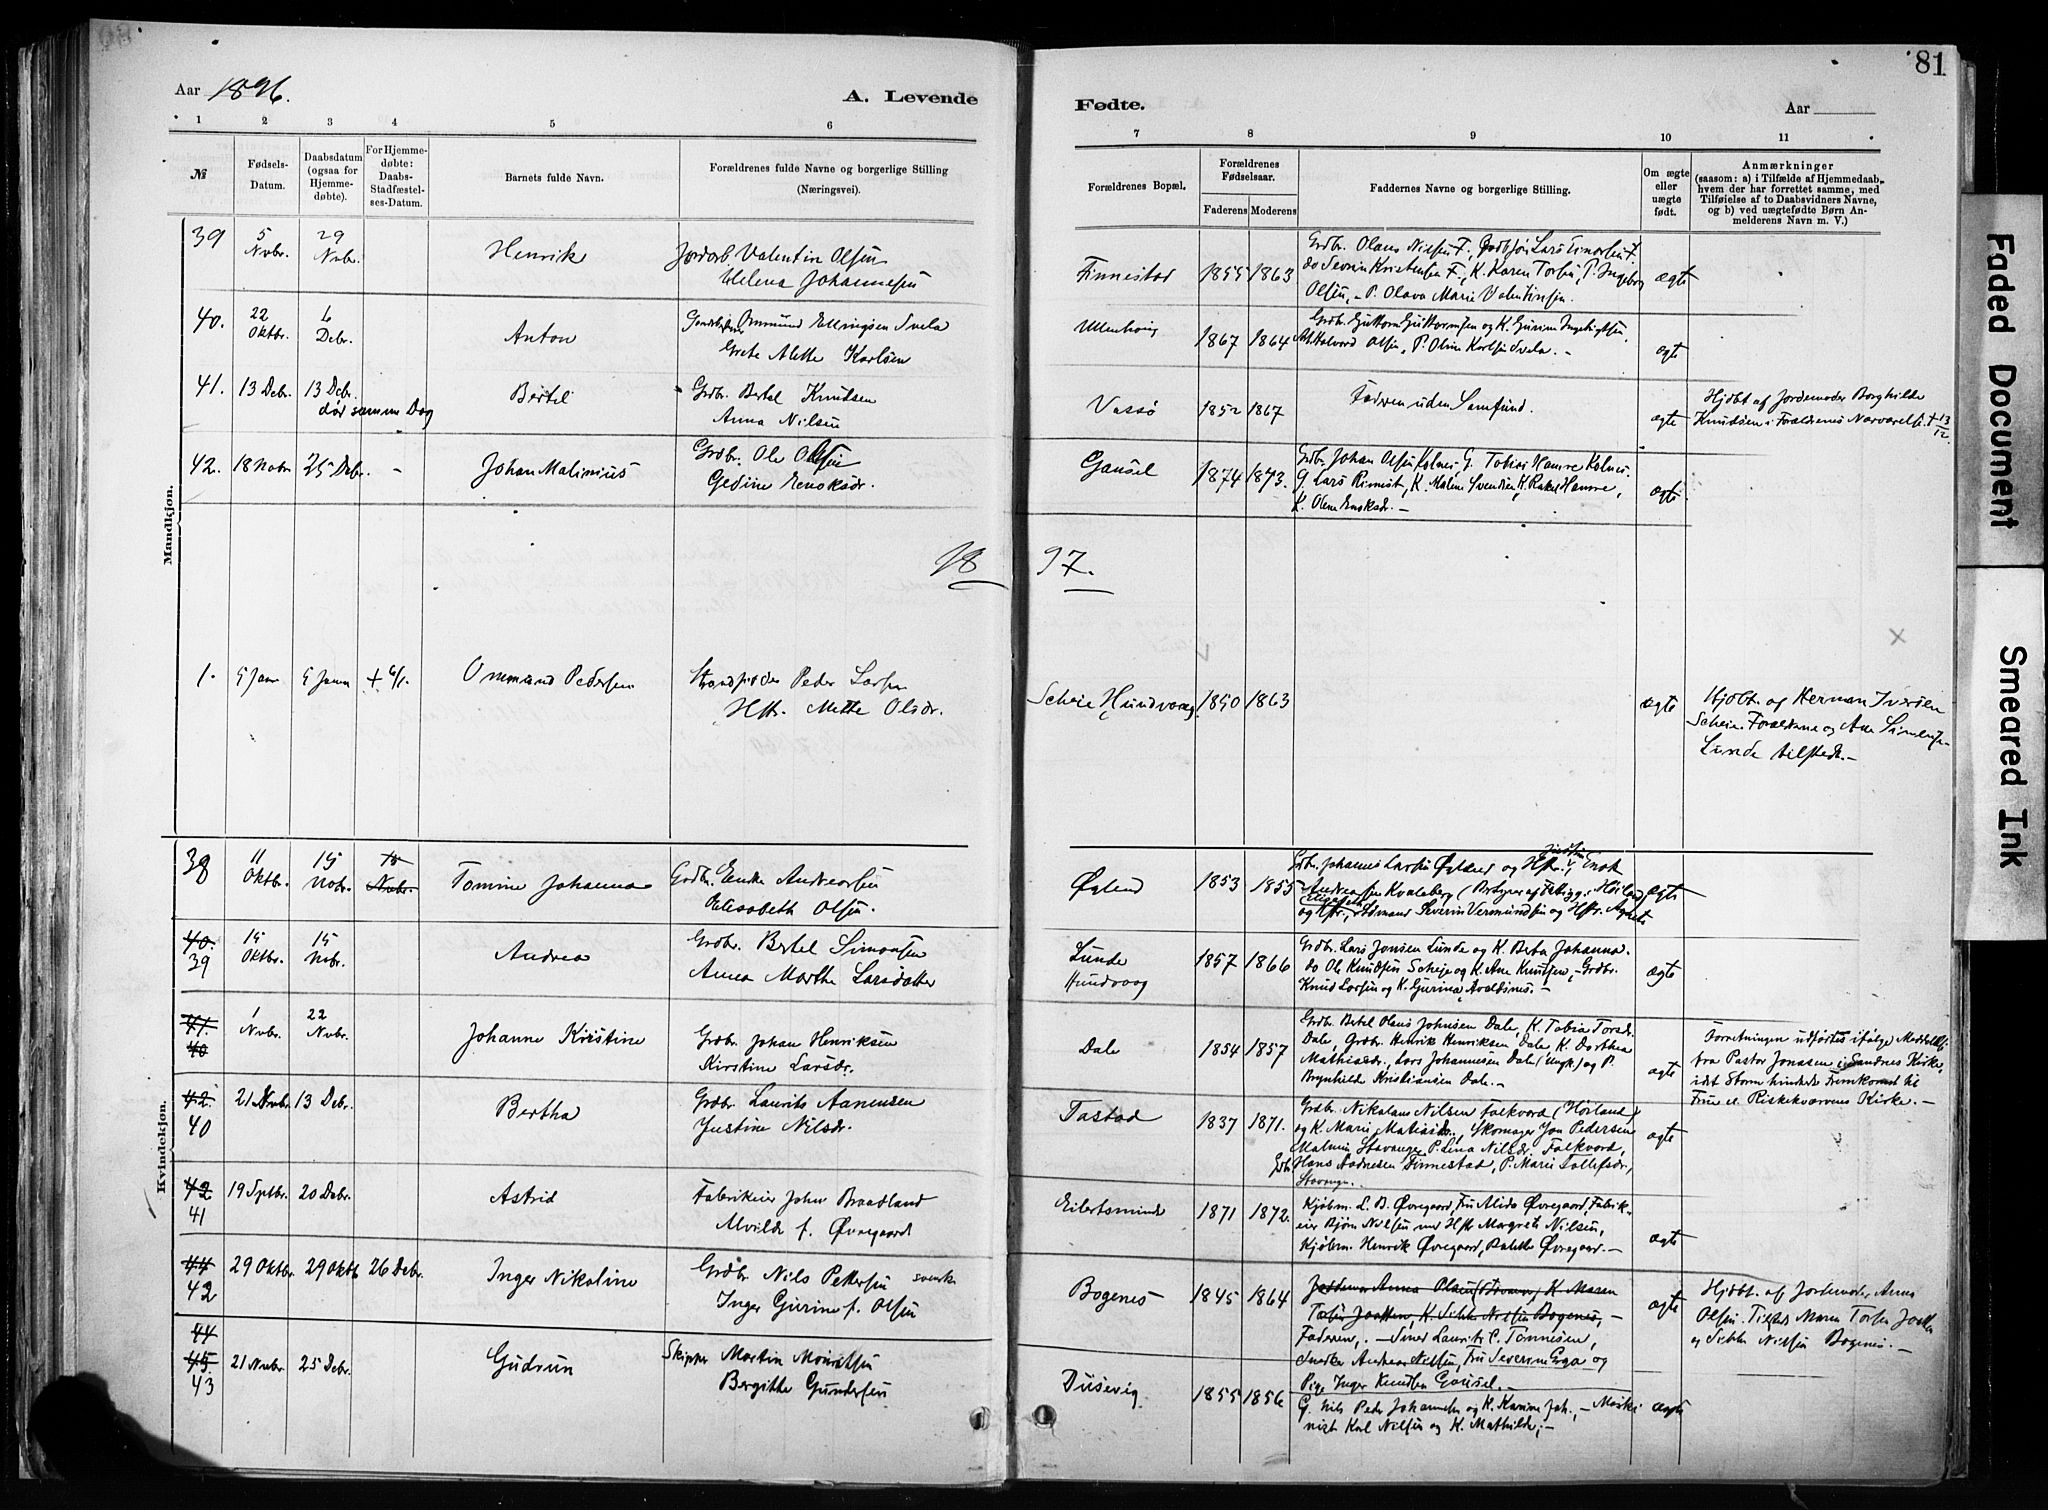 81
Aar 1896.
A. Levende
Fødte.
Aar
1 2 3 4 5 6 7 8 9 10 11
№
Fødsels-Datum.
Daabsdatum (ogsaa for Hjemmedøbte).
For Hjemmedøbte: Daabs-Stadfæstelses-Datum.
Barnets fulde Navn.
Forældrenes fulde Navne og borgerlige Stilling (Næringsvei).
Forældrenes Bopæl.
Forældrenes Fødselsaar.
Faderens Moderens
Faddernes Navne og borgerlige Stilling.
Om ægte eller uægte født.
Anmærkninger
(saasom: a) i Tilfælde af Hjemmedaab, hvem der har forrettet samme, med Tilføielse af to Daabsvidners Navne, og b) ved uægtefødte Børn Anmelderens Navn m. V.)
Mandkjøn.
39 5 Nvbr. 29 Nvbr. Henrik
Valentin Olsen
Helena Johannesen
Finnestad 1855 1863
Grdbr. Olaus Nilsen F.,
do Severin Kristensen F., K. Karen Torsen, P. Ingeborg
Olsen, P. Olava Marie Valentinsen.
ægte
40. 22 Oktbr. 6 Debr. Anton
Ommund Ellingsen Svela
Grete Alette Karlsen
Ullenhaug 1867 1864
Grdbr. Guttorm Guttormsen og K. Gurine
Halvard Olsen, P. Oline Karlsen Svela. -
ægte
41. 13 Debr. 13 Debr.
dør samme Dag
Bertel
Grdbr. Bertel Knudsen
Anna Nilsen
Vassø 1852 1867
Faderen uden Samfund.
ægte
Hjdbt af Jordemoder Borghilde
Knudsen i Forældrenes Nærværelse. † 13/12.
42. 18 Novbr 25 Debr. - Johan Malinius
Grdbr. Ole Olsen
Gedine Enoksdr.
Gausel 1874 1873.
Grdbr. Johan Olsen Kolnes G. Tobias Hamre Kolnes
G. Lars Rimest, K. Malene Svendsen, K. Rakel Hamre,
K. Olene Enoksdr. -
ægte
18 97.
1. 5 Janr 5 Janr † 6/1. Ommund Pedersen
Strandsidder Peder Larsen
Hstr. Mette Olsdr.
Scheie Hundvaag 1850 1863
ægte
Hjdbt. af Herman Iversen
Scheie. Forældrene og Ane
Lunde tilstede. -
Kvindekjøn.
38 11 Oktbr. 15 Nobr. 15 Nvbr. Tomine Johanna
Grdbr. Enok Andreassen
Elisabeth Olsen.
Øglend 1853 1855
Grdbr. Johannes Larsen Øglend og Hstr., Enok
Andreassen Kvaleberg
Elisabeth
og Hstr., Severin Vermundsen og Hstr.
ægte
40. 39 15 Oktbr. 15 Nobr. Andrea
Grdbr. Bertel Simonsen
Anna Marthe Larsdatter
Lunde
Hundvaag 1857 1866
Grdbr. Lars Jonsen Lunde og K. Berta Johanna.
do Ole Knudsen Scheie og K. Ane Knutsen, - Grdbr.
Knud Larsen og K. Gurina, Avaldsnes. -
ægte
41. 40 1 Nvbr. 22 Nvbr. Johanne Kirstine
Grdbr. Johan Henriksen
Kirstine Larsdr.
Dale 1854 1857
Grdbr. Bertel Olaus Johnsen Dale, K. Tobia Torsdr.
Dale, Grdbr. Henrik Henriksen Dale K. Dorthea
Mathiasdr., Lars Johannesen Dale (Ungk.) og P.
Brynhilde Kristiansen Dale. -
ægte
Forretningen udførtes ifølge Meddelelse
fra Pastor Jonassen i Sandnes Kirke,
idet Storm hindrede Fremkomst til
Frue el. Riskekværvens Kirke. -
42. 40 21 Nvbr. 13 Debr. Bertha
Grdbr. Laurits Aanensen
Justine Nilsdr.
Tastad 1837 1871.
Grdbr. Nikolaus Nilsen Falkvord (Høiland)
og K. Marie Matiasdr., Skomager Jon Pedersen
Malmin Stavanger, P. Lina Nilsdr. Falkvord,
Grdb. Hans Aadnesen Finnestad, P. Marie Tollefsdr.,
Stavanger.
ægte
42 41 19 Sptbr. 20 Debr. Astrid
Fabrikeier John Braadland
Alvilde f. Øvregaard
Eilertsminde 1871 1872.
Kjøbm. L. B. Øvregaard, Fru Alida Øvregaard, Fabrik-
eier Bjørn Nilsen med Hstr Margrete Nilsen,
Kjøbm. Henrik Øvregaard, Øvregaard. -
ægte
44 42 29 Oktbr. 29 Oktb 26 Debr. Inger Nikoline
Grdbr. Nils Pettersen svenske
Inger Gurine f. Olsen
Bogenes 1845 1864
Jordemor Anna Olsen K. Maren
Torsen Jaatten, K. Sibble Nilsen Bogenes, -
Faderen, - Laurits P. Tønnesen,
Snedker Andreas Nilsen, Fru Severine Erga og
Pige Inger Knudsen Gausel. -
ægte
Hjdbt. af Jordemoder Anna
Olsen. Tilsted Maren Torsen Jaatten
og Sibble Nilsen Bogenes. -
44 45 43 21 Nvbr. 25 Debr. Gudrun
Skipper Martin Mauritsen
Bergitte Gundersen
Dusevig 1855 1856
G. Nils Peder Johannesen og K. Karine Joh., - Maski-
nist Karl Nilsen og K. Mathilde, -
ægte
Faded Document
Smeared Ink